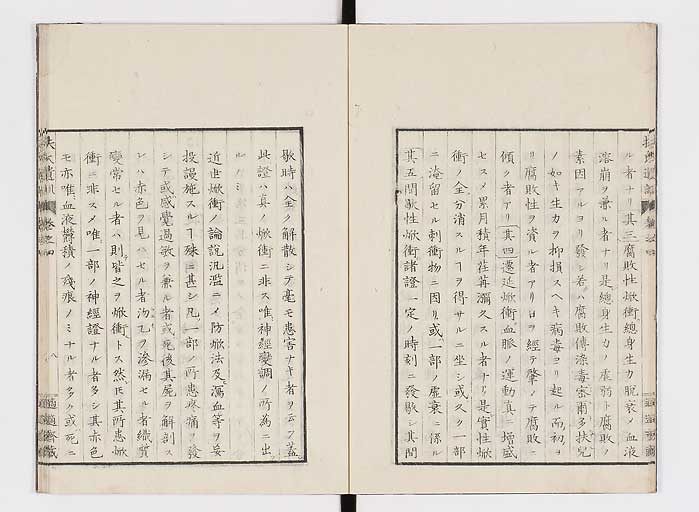 ル者ナリ其三腐敗性焮衝總身生力脱衰ノ血液
溶崩ヲ兼ル者ナリ是總身生力ノ虚弱ト腐敗ノ
素因アルヨリ發シ若ハ腐敗傳染毒
ノ如キ生力ヲ抑損スヘキ病毒ヨリ起ル而初ヨ
リ腐敗性ヲ資ル者アリ日ヲ經テ肇メテ腐敗ニ
傾ク者アリ其四遷延焮衝血脈ノ運動真ニ增盛
セスメ累月積年荏苒彌久スル者ナリ是實性焮
衝ノ全分消スルヿヲ得サルニ坐シ或久ク一部
ニ淹留セル刺衝物ニ因リ或一部ノ虚衰ニ係ル
其五間歇性焮衝諸證一定ノ時刻ニ發歇シ其間
歇時ハ全ク解散シテ毫モ患害ナキ者ヲ云フ蓋
此證ハ真ノ焮衝ニ非ス唯神經變調ノ所為ニ出
ルノミ
近世焮衝ノ論說汎濫ニメ防焮法及瀉血等ヲ妄
投謾施スルヿ殊ニ甚シ凡一部ノ所患疼痛ヲ發
シテ或感覺過敏ヲ兼ル者或死後其屍ヲ解剖ス
レハ赤色ヲ見ハセル者沕乙ヲ滲漏セル者織質
變常セル者ハ則皆之ヲ焮衝トス然𪜈其所患焮
衝ニ非スメ唯一部ノ神經證ナル者多シ其赤色
モ亦唯血液欝積ノ殘痕ノミナル者多ク或死ニ
扶氏遺訓 卷之四
八
適適齋藏